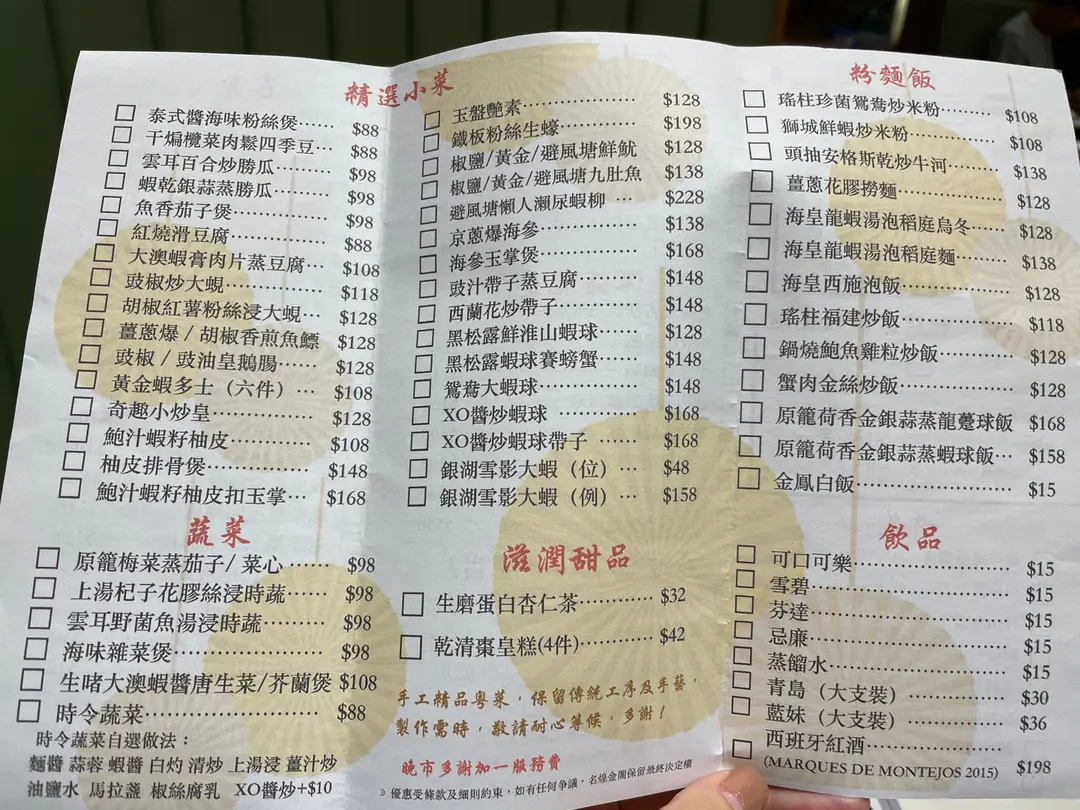 精選小菜
泰式醬海味粉絲煲…… $88
干煸欖菜肉鬆四季豆… $88
雲耳百合炒勝瓜…… $98
蝦乾銀蒜蒸勝瓜…… $98
魚香茄子煲…… $98
紅燒滑豆腐…… $88
大澳蝦膏肉片蒸豆腐… $108
豉椒炒大蜆…… $118
胡椒紅薯粉絲浸大蜆… $128
薑蔥爆/胡椒香煎魚鰾 $128
豉椒/豉油皇鵝腸…… $128
黃金蝦多士（六件）… $108
奇趣小炒皇…… $128
鮑汁蝦籽柚皮…… $108
柚皮排骨煲…… $148
鮑汁蝦籽柚皮扣玉掌… $168
玉盤艷素…… $128
鐵板粉絲生蠔…… $198
椒鹽/黃金/避風塘鮮魷 $128
椒鹽/黃金/避風塘九肚魚 $138
避風塘懶人瀨尿蝦柳 … $228
京蔥爆海參…… $138
海參玉掌煲…… $168
豉汁帶子蒸豆腐…… $148
西蘭花炒帶子…… $148
黑松露鮮淮山蝦球…… $128
黑松露蝦球賽螃蟹…… $148
鴛鴦大蝦球…… $148
XO醬炒蝦球 …… $168
XO醬炒蝦球帶子 …… $168
銀湖雪影大蝦（位）… $48
銀湖雪影大蝦（例）… $158
粉麵飯
瑤柱珍菌鴛鴦炒米粉…… $108
獅城鮮蝦炒米粉…… $108
頭抽安格斯乾炒牛河…… $138
薑蔥花膠撈麵…… $128
海皇龍蝦湯泡稻庭烏冬…… $128
海皇龍蝦湯泡稻庭麵…… $138
海皇西施泡飯…… $128
瑤柱福建炒飯…… $118
鍋燒鮑魚雞粒炒飯…… $128
蟹肉金絲炒飯…… $128
原籠荷香金銀蒜蒸龍躉球飯 $168
原籠荷香金銀蒜蒸蝦球飯… $158
金鳳白飯…… $15
蔬菜
原籠梅菜蒸茄子/菜心…… $98
上湯杞子花膠絲浸時蔬…… $98
雲耳野菌魚湯浸時蔬…… $98
海味雜菜煲…… $98
生啫大澳蝦醬唐生菜/芥蘭煲 $108
時令蔬菜…… $88
時令蔬菜自選做法：
麵醬 蒜蓉 蝦醬 白灼 清炒 上湯浸 薑汁炒
油鹽水 馬拉盞 椒絲腐乳 XO醬炒+$10
滋潤甜品
生磨蛋白杏仁茶…… $32
乾清棗皇糕(4件)…… $42
手工精品粵菜，保留傳統工序及手藝，
製作需時，敬請耐心等候，多謝！
晚市多謝加一服務費
》優惠受條款及細則約束，如有任何爭議，名煌金閣保留最終決定權
飲品
可口可樂…… $15
雪碧…… $15
芬達…… $15
忌廉…… $15
蒸餾水…… $15
青島（大支裝）…… $30
藍妹（大支裝）…… $36
西班牙紅酒……
(MARQUES DE MONTEJOS 2015) $198